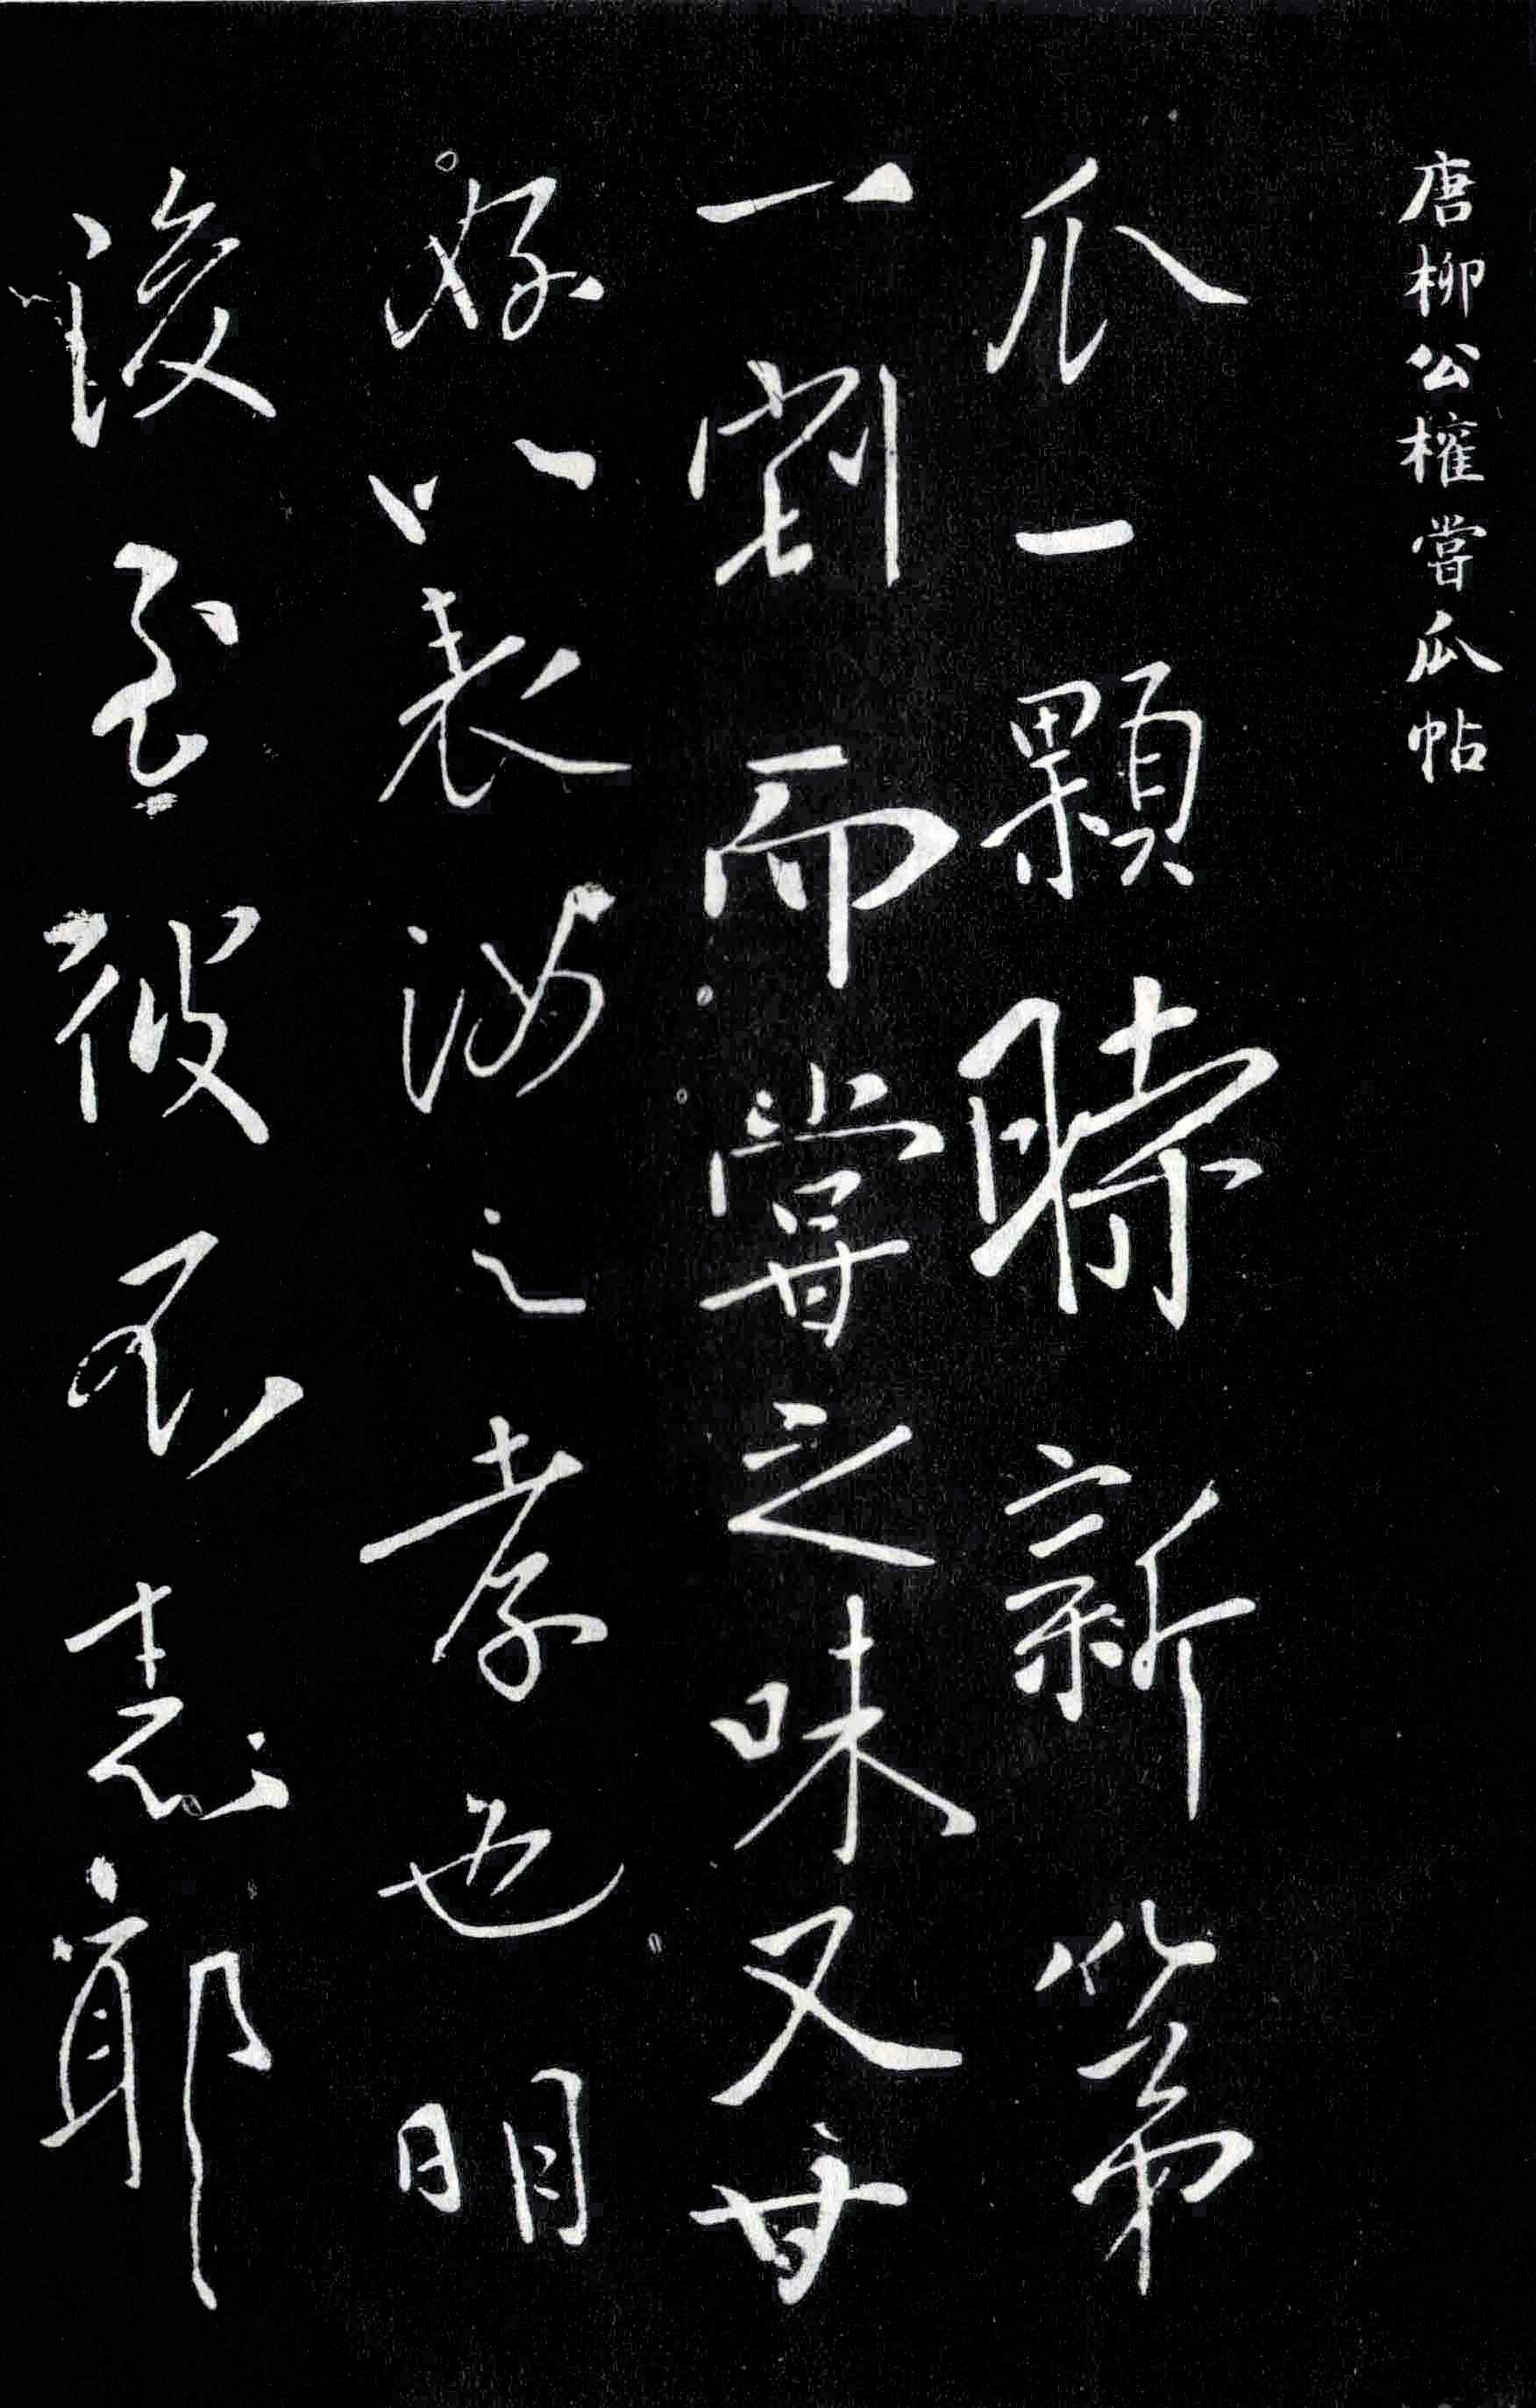 唐柳公權嘗瓜帖
瓜一顆時新第
一割而嘗之味又甘
好以表汝之孝也明
後至彼不志耶